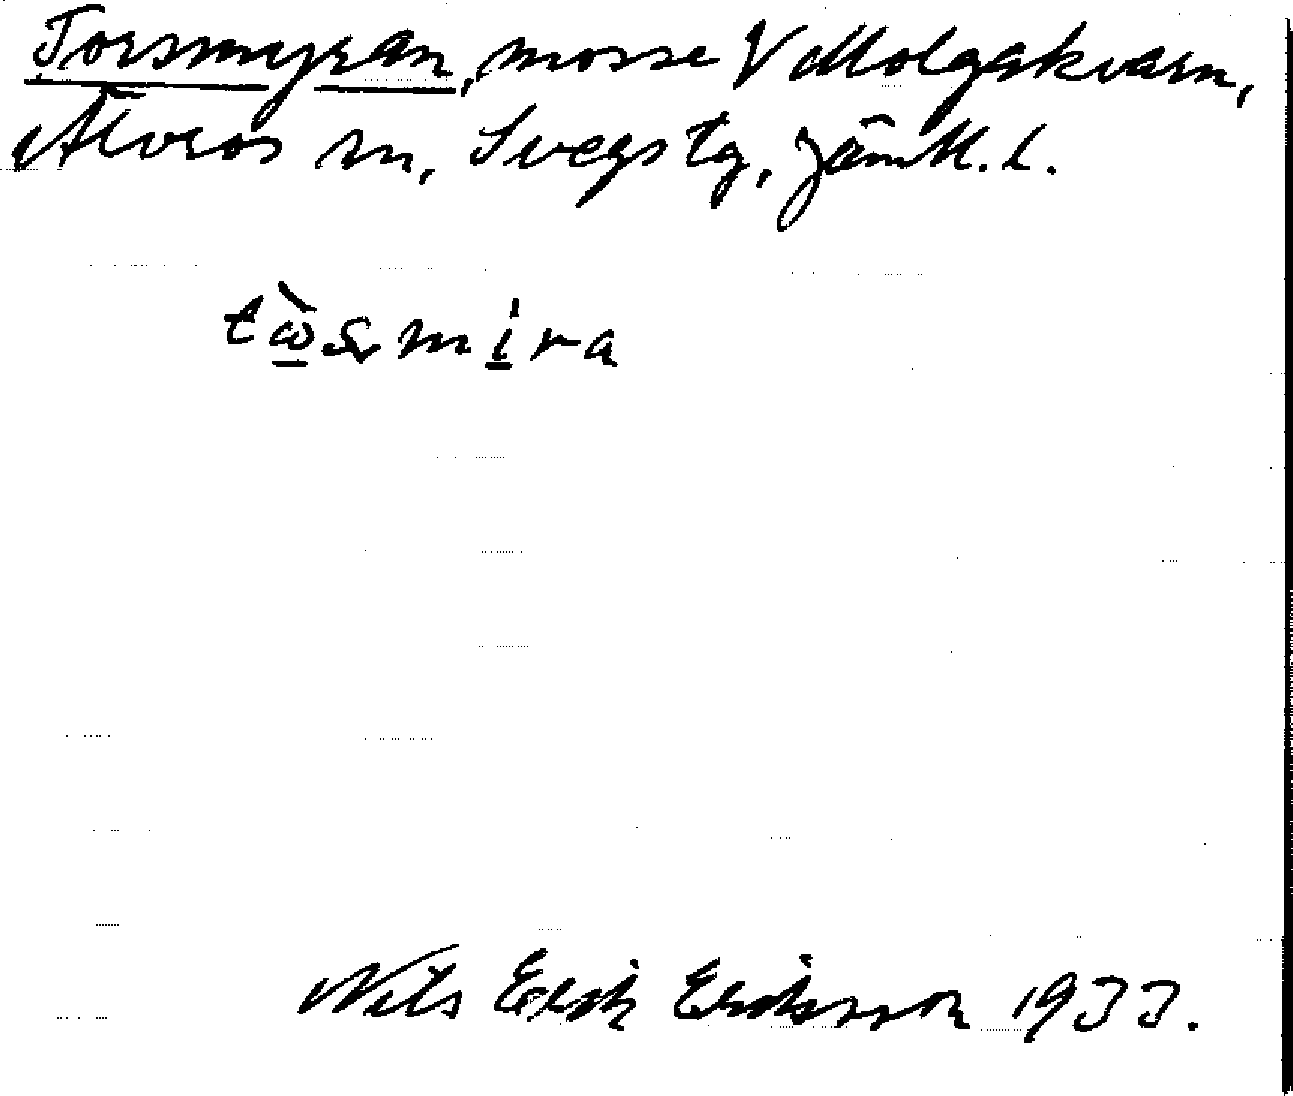 Torsmyran, mosse V Molgakvarn,
Älvros sn, Svegs tg, Jämtl. l.
tὼ̲ʂmi̲ra
Nils Erik Eriksson 1933.